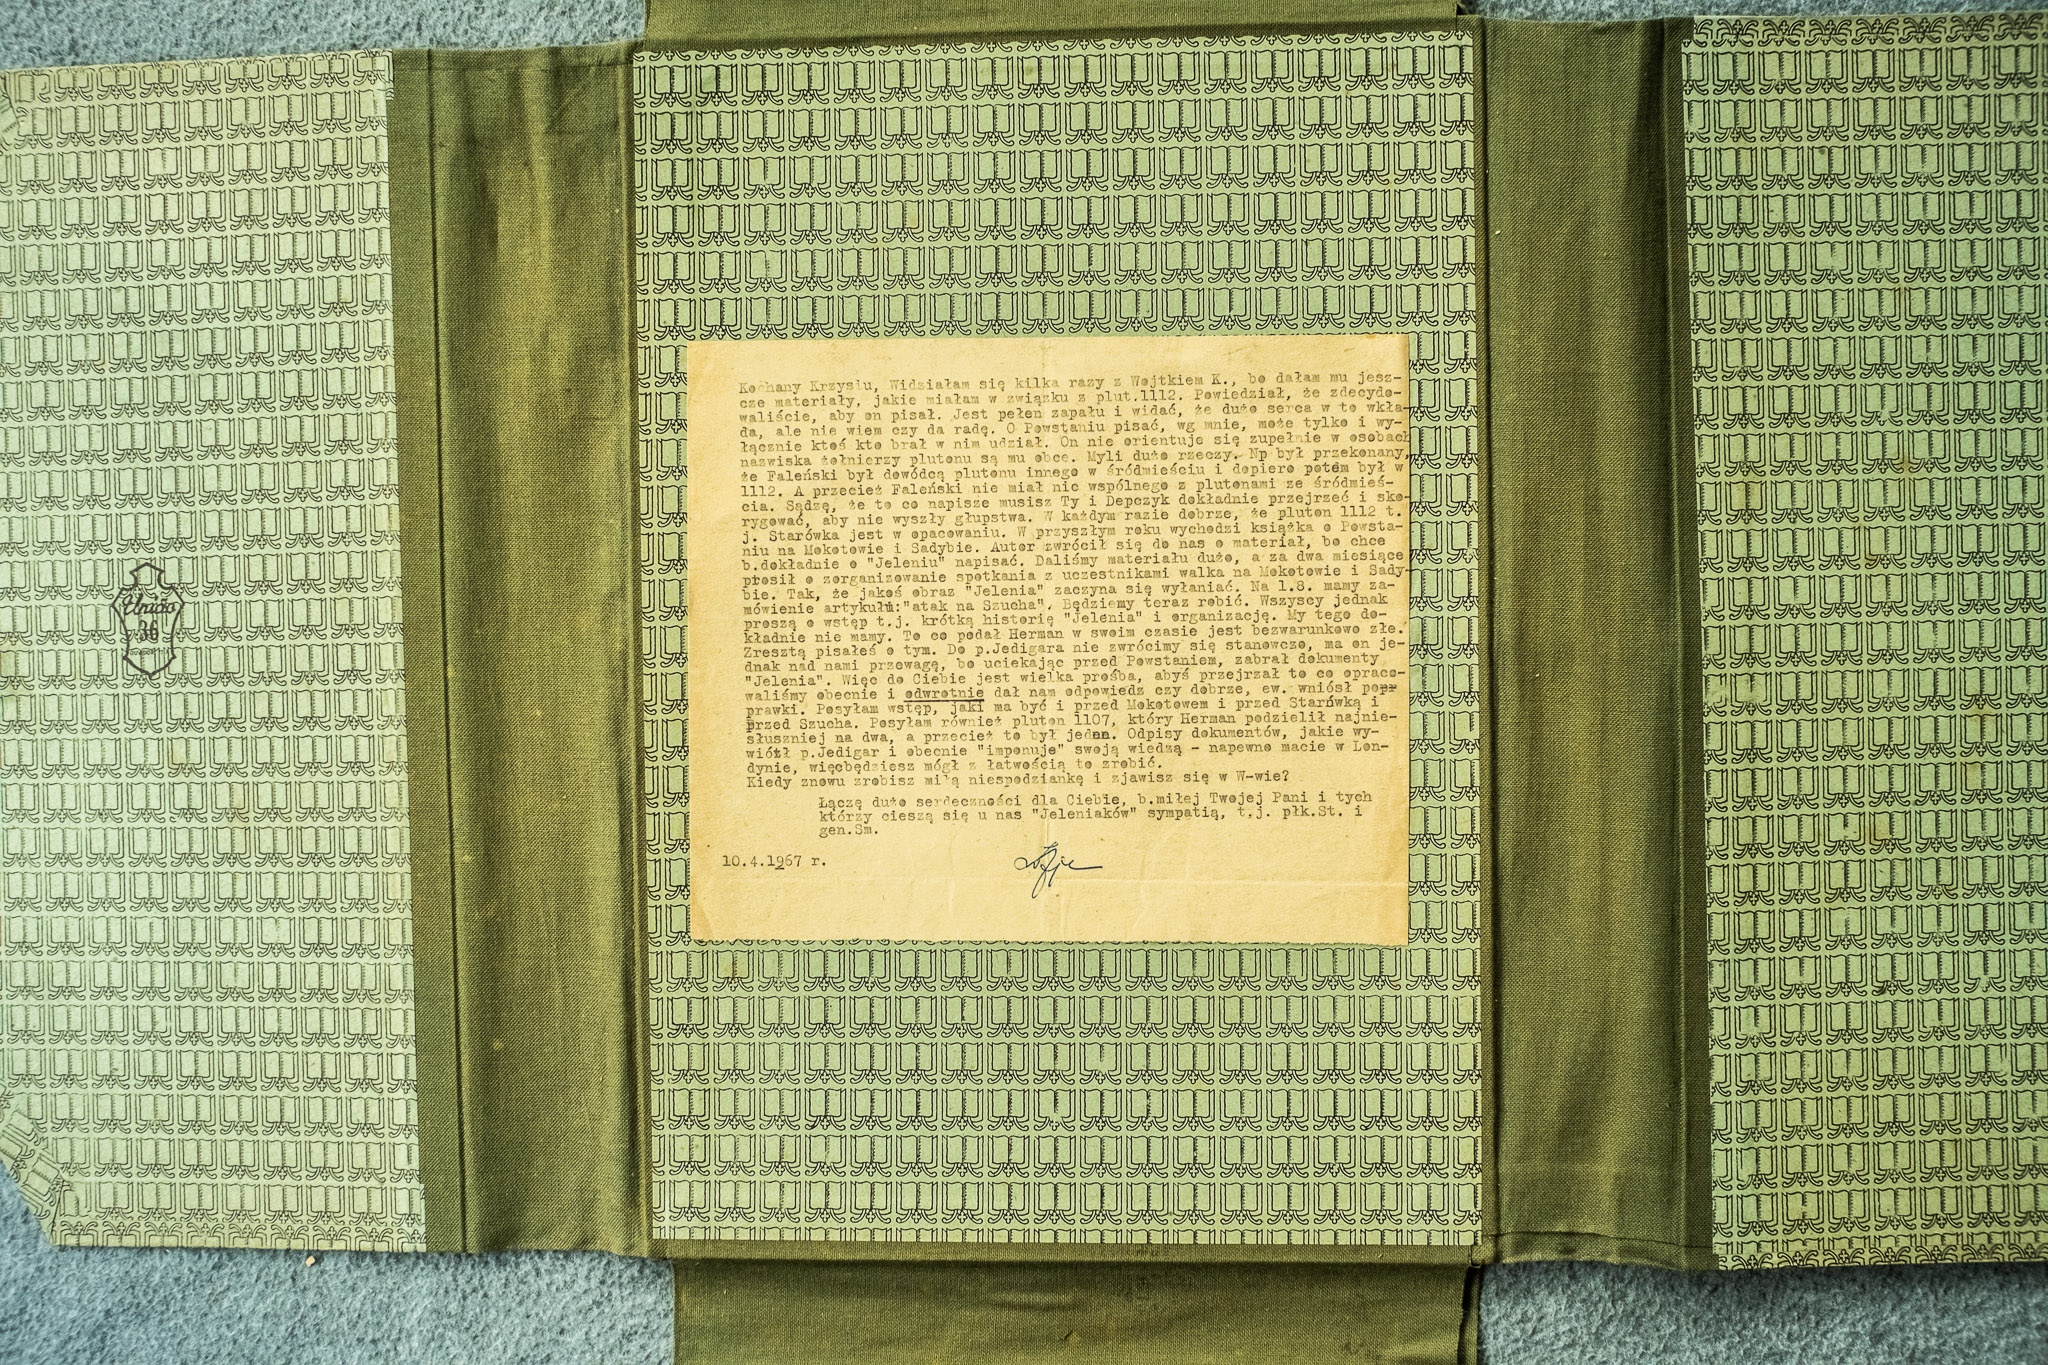 Kochany Krzysiu, Widziałam się kilka razy z Wojtkiem K., bo dałam mu jesz-
cze materiały, jakie miałam w związku z plut.1112. Powiedział, że zdecydo-
waliście, aby on pisał. Jest pełen zapału i widać, że dużo serca w to wkła-
da, ale nie wiem czy da radę. O Powstaniu pisać, wg mnie, może tylko i wy-
łącznie ktoś kto brał w nim udział. On nie orientuje się zupełnie w osobach
nazwiska żołnierzy plutonu są mu obce. Myli dużo rzeczy. Np był przekonany,
że Faleński był dowódcą plutonu innego w śródmieściu i dopiero potem był w
1112. A przecież Faleński nie miał nic wspólnego z plutonami ze śródmieś-
cia. Sądzę, że to co napisze musisz Ty i Depczyk dokładnie przejrzeć i sko-
rygować, aby nie wyszły głupstwa. W każdym razie dobrze, że pluton 1112 t.
j. Starówka jest w opacowaniu. W przyszłym roku wychodzi książka o Powsta-
niu na Mokotowie i Sadybie. Autor zwrócił się do nas o materiał, bo chce
b.dokładnie o "Jeleniu" napisać. Daliśmy materiału dużo, a za dwa miesiące
prosił o zorganizowanie spotkania z uczestnikami walka na Mokotowie i Sady-
bie. Tak, że jakoś obraz "Jelenia" zaczyna się wyłaniać. Na 1.8. mamy za-
mówienie artykułu:"atak na Szucha". Będziemy teraz robić. Wszyscy jednak
proszą o wstęp t.j. krótką historię "Jelenia" i organizację. My tego do-
kładnie nie mamy. To co podał Herman w swoim czasie jest bezwarunkowo złe.
Zresztą pisałeś o tym. Do p.Jedigara nie zwrócimy się stanowczo, ma on je-
dnak nad nami przewagę, bo uciekając przed Powstaniem, zabrał dokumenty
"Jelenia". Więc do Ciebie jest wielka prośba, abyś przejrzał to co opraco-
waliśmy obecnie i odwrotnie dał nam odpowiedz czy dobrze, ew. wniósł popr
prawki. Posyłam wstęp, jaki ma być i przed Mokotowem i przed Starówką i
przed Szucha. Posyłam również pluton 1107, który Herman podzielił najnie-
słuszniej na dwa, a przecież to był jeden. Odpisy dokumentów, jakie wy-
wiózł p.Jedigar i obecnie "imponuje" swoją wiedzą - napewno macie w Lon-
dynie, więcbędziesz mógł z łatwością to zrobić.
Kiedy znowu zrobisz miłą niespodziankę i zjawisz się w W-wie?
Łączę dużo serdeczności dla Ciebie, b.miłej Twojej Pani i tych
którzy cieszą się u nas "Jeleniaków" sympatią, t.j. płk.St. i
gen.Sm.
10.4.1967 r.
Union
36